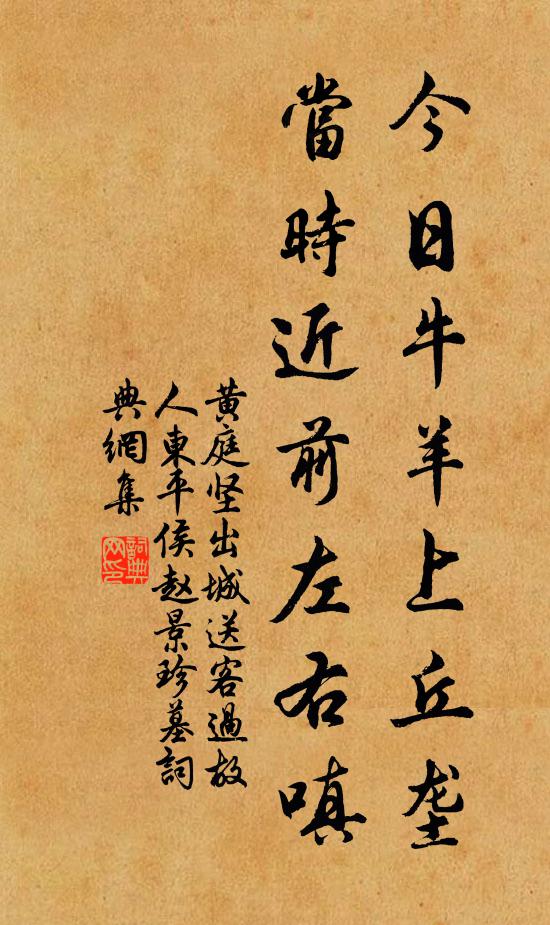 今日牛羊上丘垄
當時近前左右嗔
黄庭坚出城送客過故
人東平侯赵景珍墓詞
典網集
詞典網印